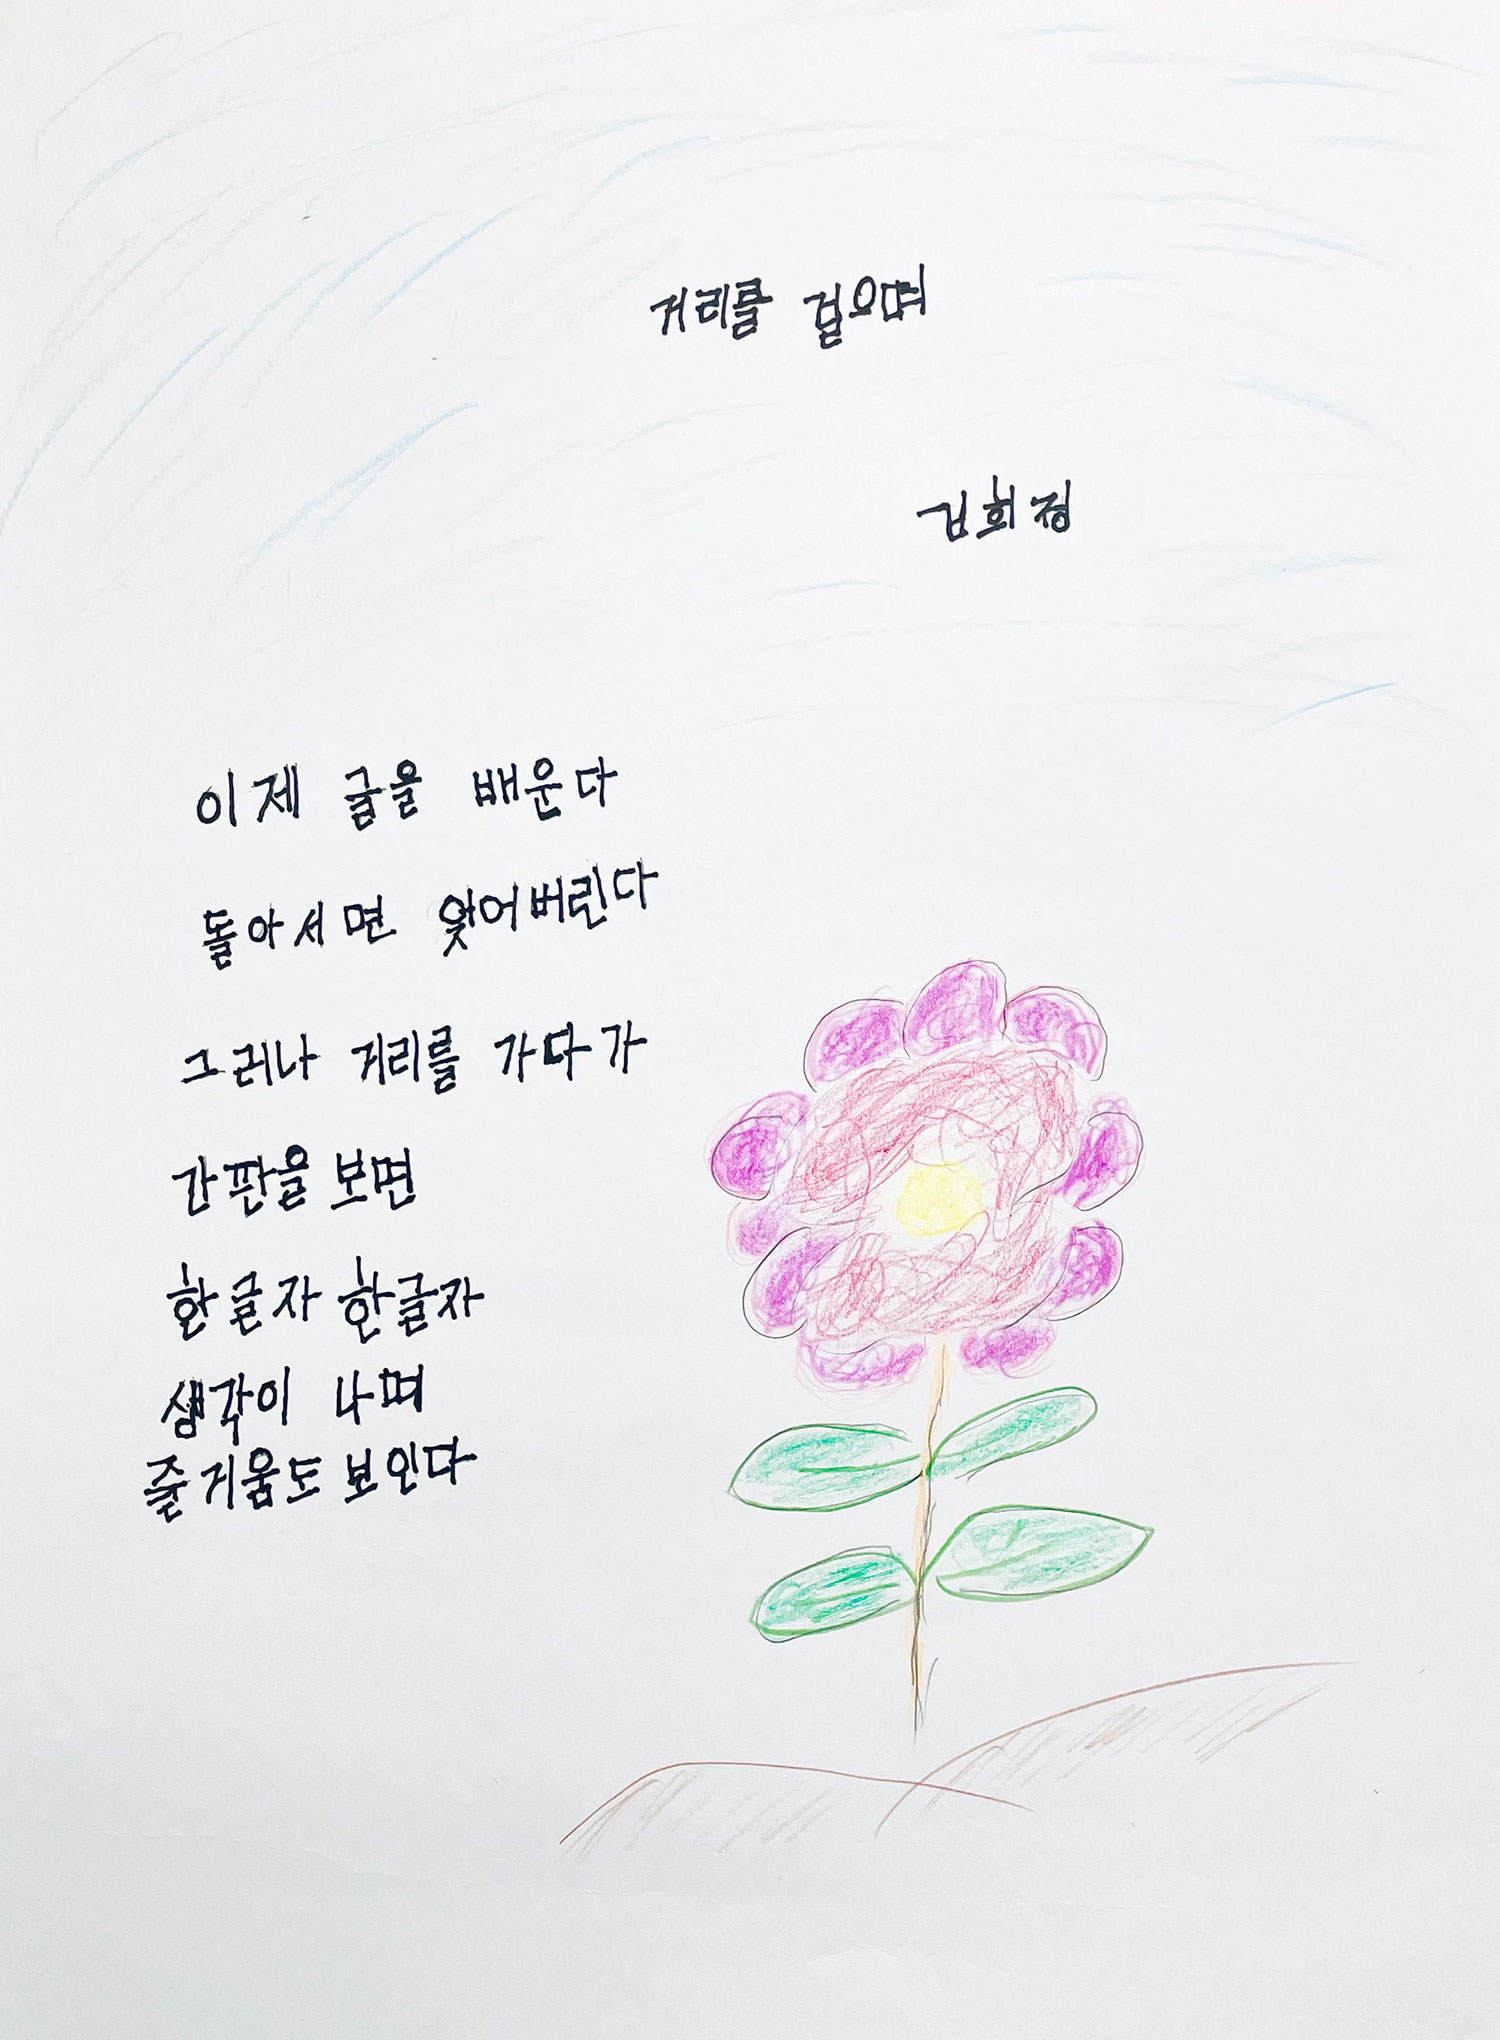 거리를 걸으며
김희정
이제 글을 배운다
돌아서면 잊어버린다
그러나 거리를 가다가
간판을 보면
한글자 한글자
생각이 나며
즐거움도 보인다